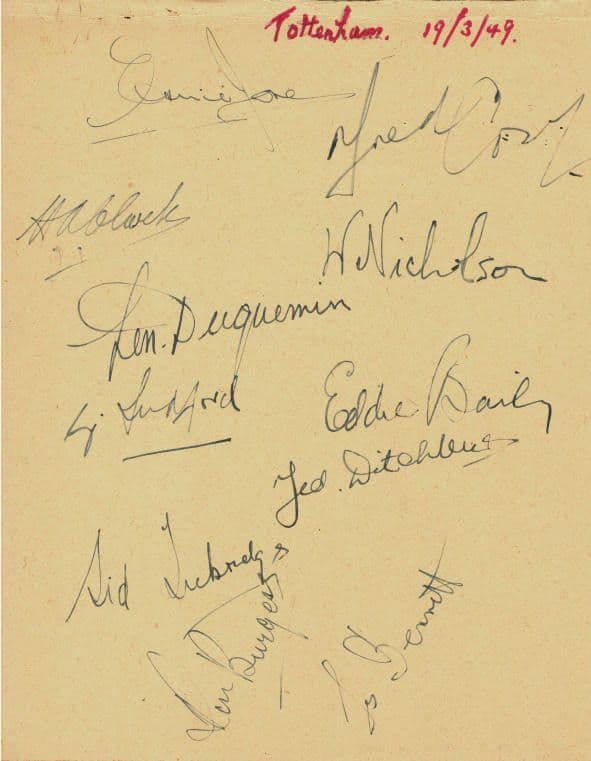 Tottenham. 19/3/49.
Ernie Jones
Fred Cox
H A Clarke
W Nicholson
Len. Duquemin
G. Ludford
Eddie Baily
Ted. Ditchburn
Sid Tickridge
Ron Burgess
Les Bennett